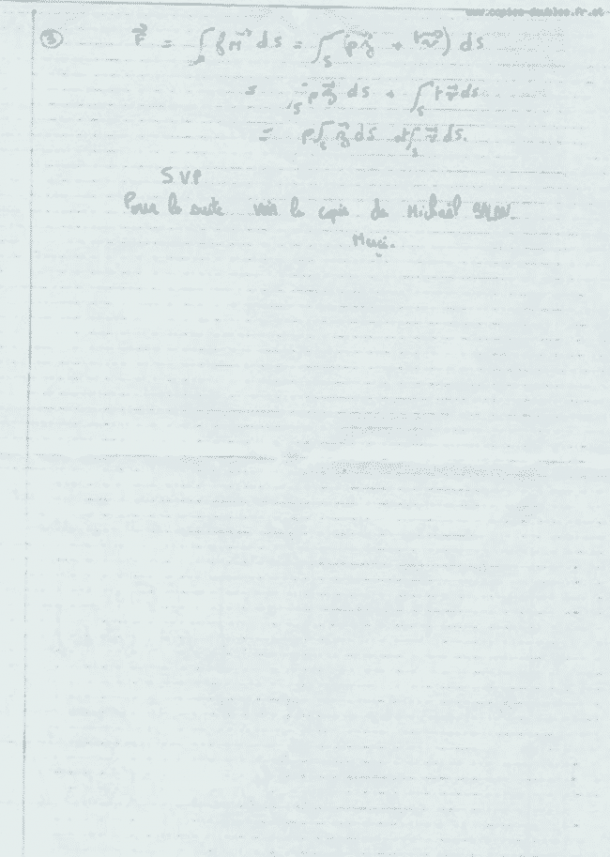 www.copies-doubles.fr.st
③ F⃗ = ∫ f M⃗ ds = ∫_S (p z⃗ + t v⃗) ds
= ∫_S p z⃗ ds + ∫_S t v⃗ ds
= p ∫_S z⃗ ds + t ∫_S v⃗ ds.
SVP
Pour la suite voir la copie de Michaël
Merci.